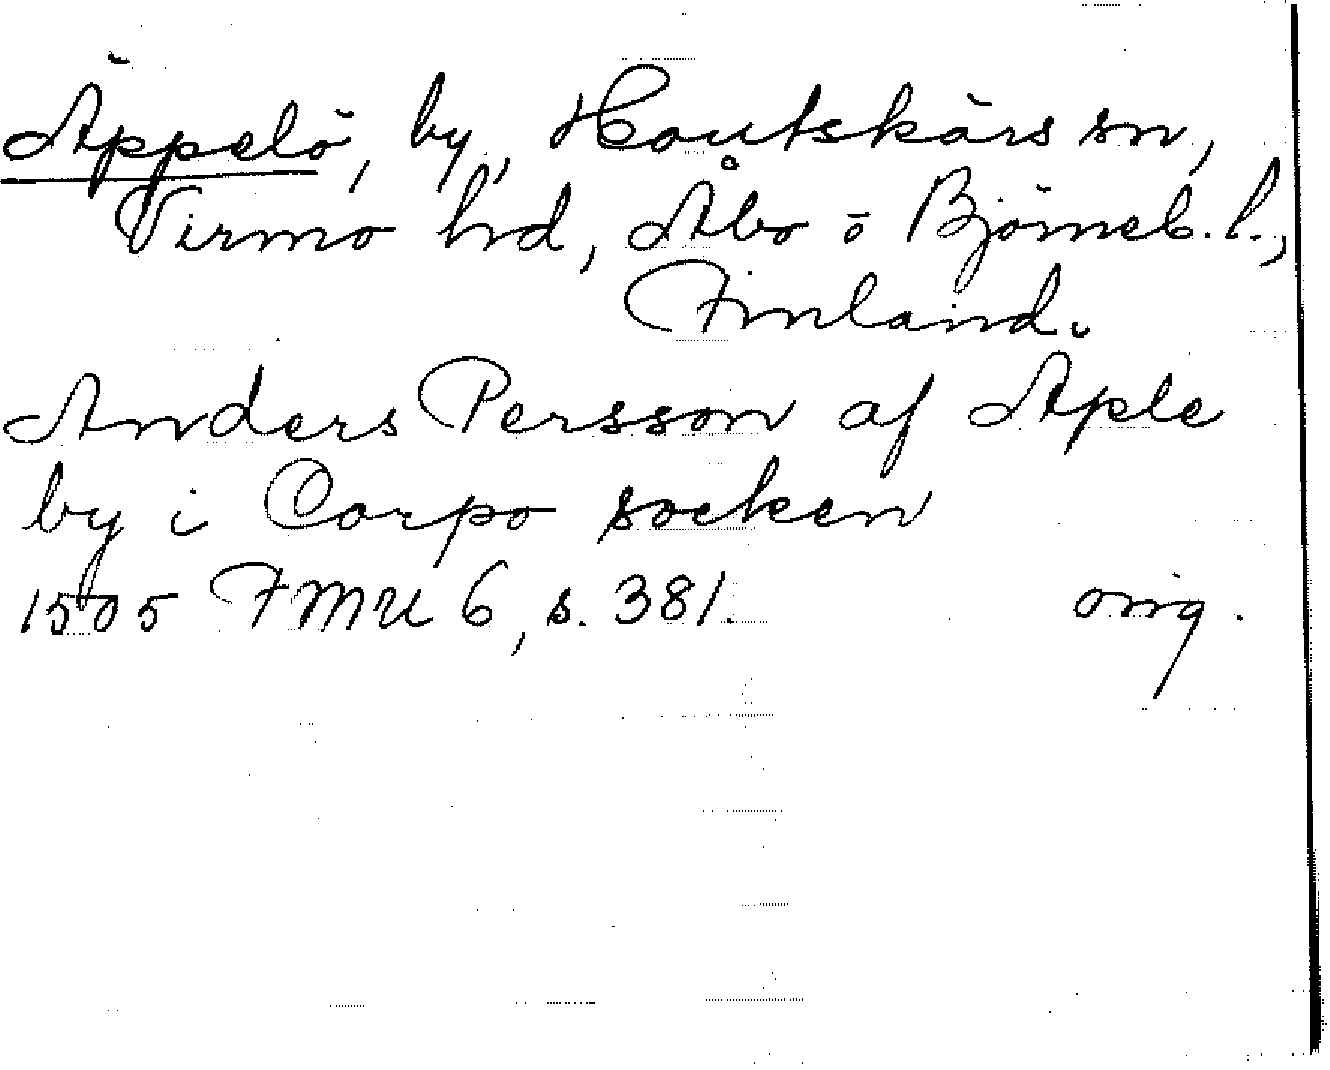 Äppelö, by, Houtskärs sn,
Virmo hd, Åbo o Björneb. l.,
Finland.
Anders Persson af Aple
by i Corpo socken
1505 FMU 6, s. 381. orig.